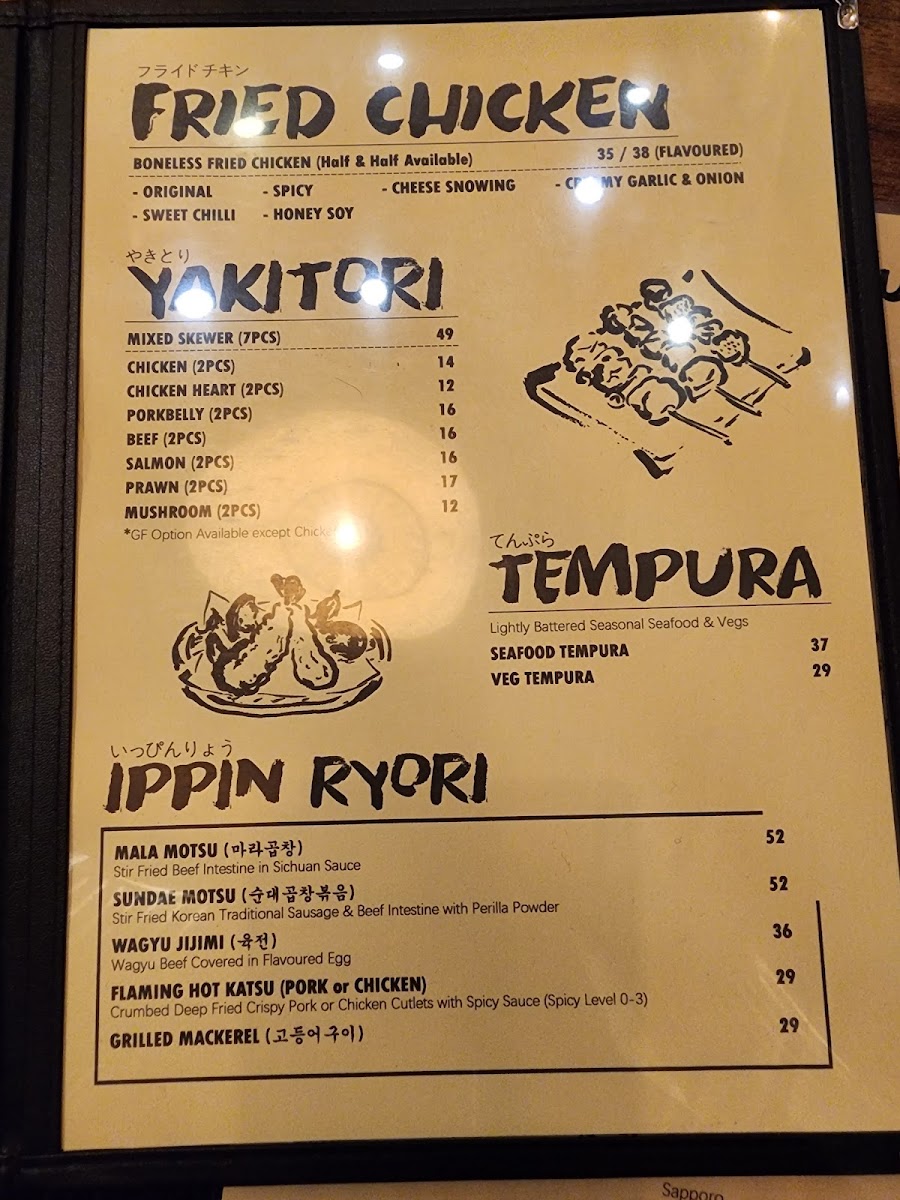 フライドチキン
FRIED CHICKEN
BONELESS FRIED CHICKEN (Half & Half Available) 35 / 38 (FLAVOURED)
- ORIGINAL - SPICY - CHEESE SNOWING - GARLIC & ONION
- SWEET CHILLI - HONEY SOY
やきとり
YAKITORI
MIXED SKEWER (7PCS) 49
CHICKEN (2PCS) 14
CHICKEN HEART (2PCS) 12
PORKBELLY (2PCS) 16
BEEF (2PCS) 16
SALMON (2PCS) 16
PRAWN (2PCS) 17
MUSHROOM (2PCS) 12
*GF Option Available except
てんぷら
TEMPURA
Lightly Battered Seasonal Seafood & Vegs
SEAFOOD TEMPURA 37
VEG TEMPURA 29
いっぴんりょう
IPPIN RYORI
MALA MOTSU (마라곱창) 52
Stir Fried Beef Intestine in Sichuan Sauce
SUNDAE MOTSU (순대곱창볶음) 52
Stir Fried Korean Traditional Sausage & Beef Intestine with Perilla Powder
WAGYU JIJIMI (육전) 36
Wagyu Beef Covered in Flavoured Egg
FLAMING HOT KATSU (PORK or CHICKEN) 29
Crumbed Deep Fried Crispy Pork or Chicken Cutlets with Spicy Sauce (Spicy Level 0-3)
GRILLED MACKEREL (고등어구이) 29
Sapporo